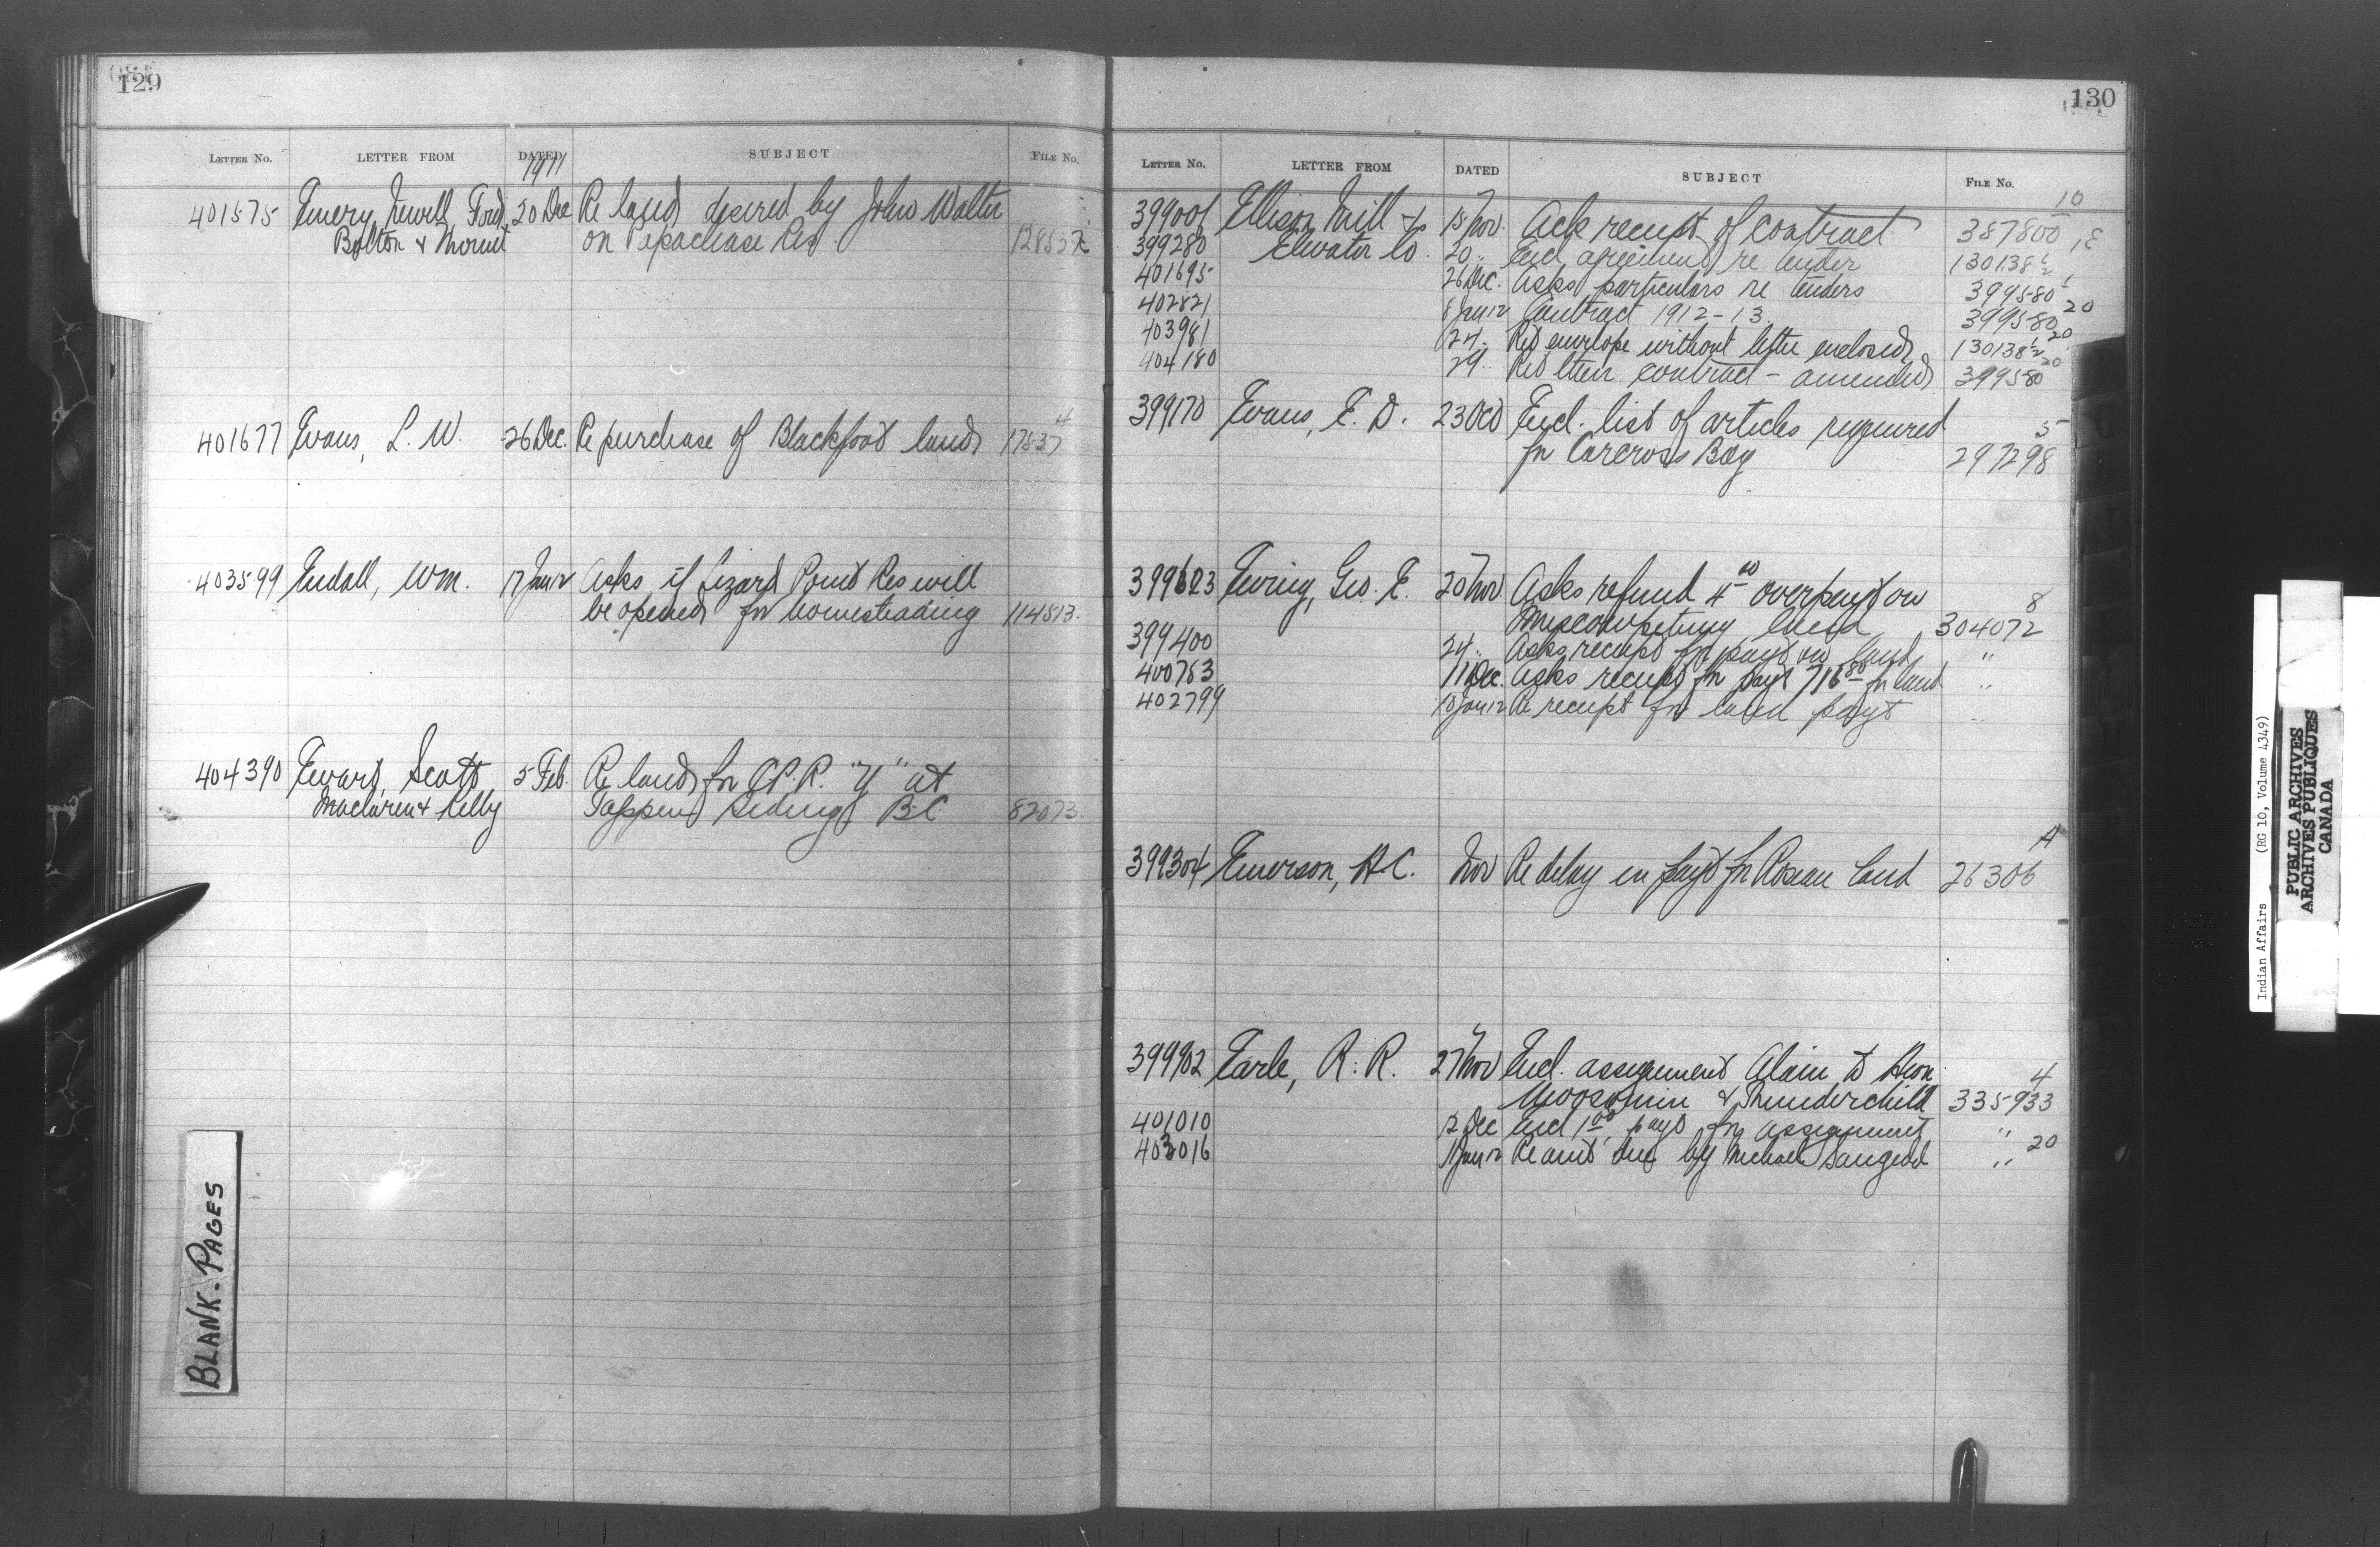 129
LETTER NO. LETTER FROM DATED SUBJECT FILE No.
1911
401575 Emery, Newell, Ford, 20 Dec Re land desired by John Walter
Bolton & Mount on Papachase Res. 12853
401677 Evans, L. W. 26 Dec. Re purchase of Blackfoot land 17537 4
403599 Endall, Wm. 17 Jan 12 Asks if Lizard Point Res will
be opened for homesteading 114513.
404390 Ewart, Scott 5 Feb. Re land for C.P.R. "Y" at
Maclaren & Kelly Tappen Siding B.C. 82073
BLANK-PAGES
130
LETTER NO. LETTER FROM DATED SUBJECT FILE No.
399001 Ellison Mill & 15 Nov. Ack receipt of contract 387800 10
399280 Elevator Co. 20 " Encl agreement re tender 130138
401695 26 Dec. Asks particulars re tenders 399580
402821 8 Jan 12 Contract 1912-13. 399580 20
403981 24 " Ret envelope without letter enclosed 130138 ½ 20
404180 29 " Ret their contract - amended 399580 20
399170 Evans, E. D. 23 Oct Encl. list of articles required 5
for Carcross Bdg 297298
399623 Ewing, Geo. E. 20 Nov Asks refund 4 00 overpayt on 8
land 304072
399400 24 " Asks receipt for payt on land "
400763 11 Dec. Asks receipt for payt 716 80 for land "
402799 10 Jan 12 Re receipt for land payt "
399304 Emerson, H.C. Nov Re delay in payt for Roseau land 26306 A
399902 Earle, R. R. 27 Nov Encl. assignment Alain to 4
Moosomin & Thunderchild 335933
401010 12 Dec Encl 1 00 payt for assignment "
403016 Jan 12 Re amt due by Michael " 20
Indian Affairs (RG 10, Volume 4349)
PUBLIC ARCHIVES
ARCHIVES PUBLIQUES
CANADA